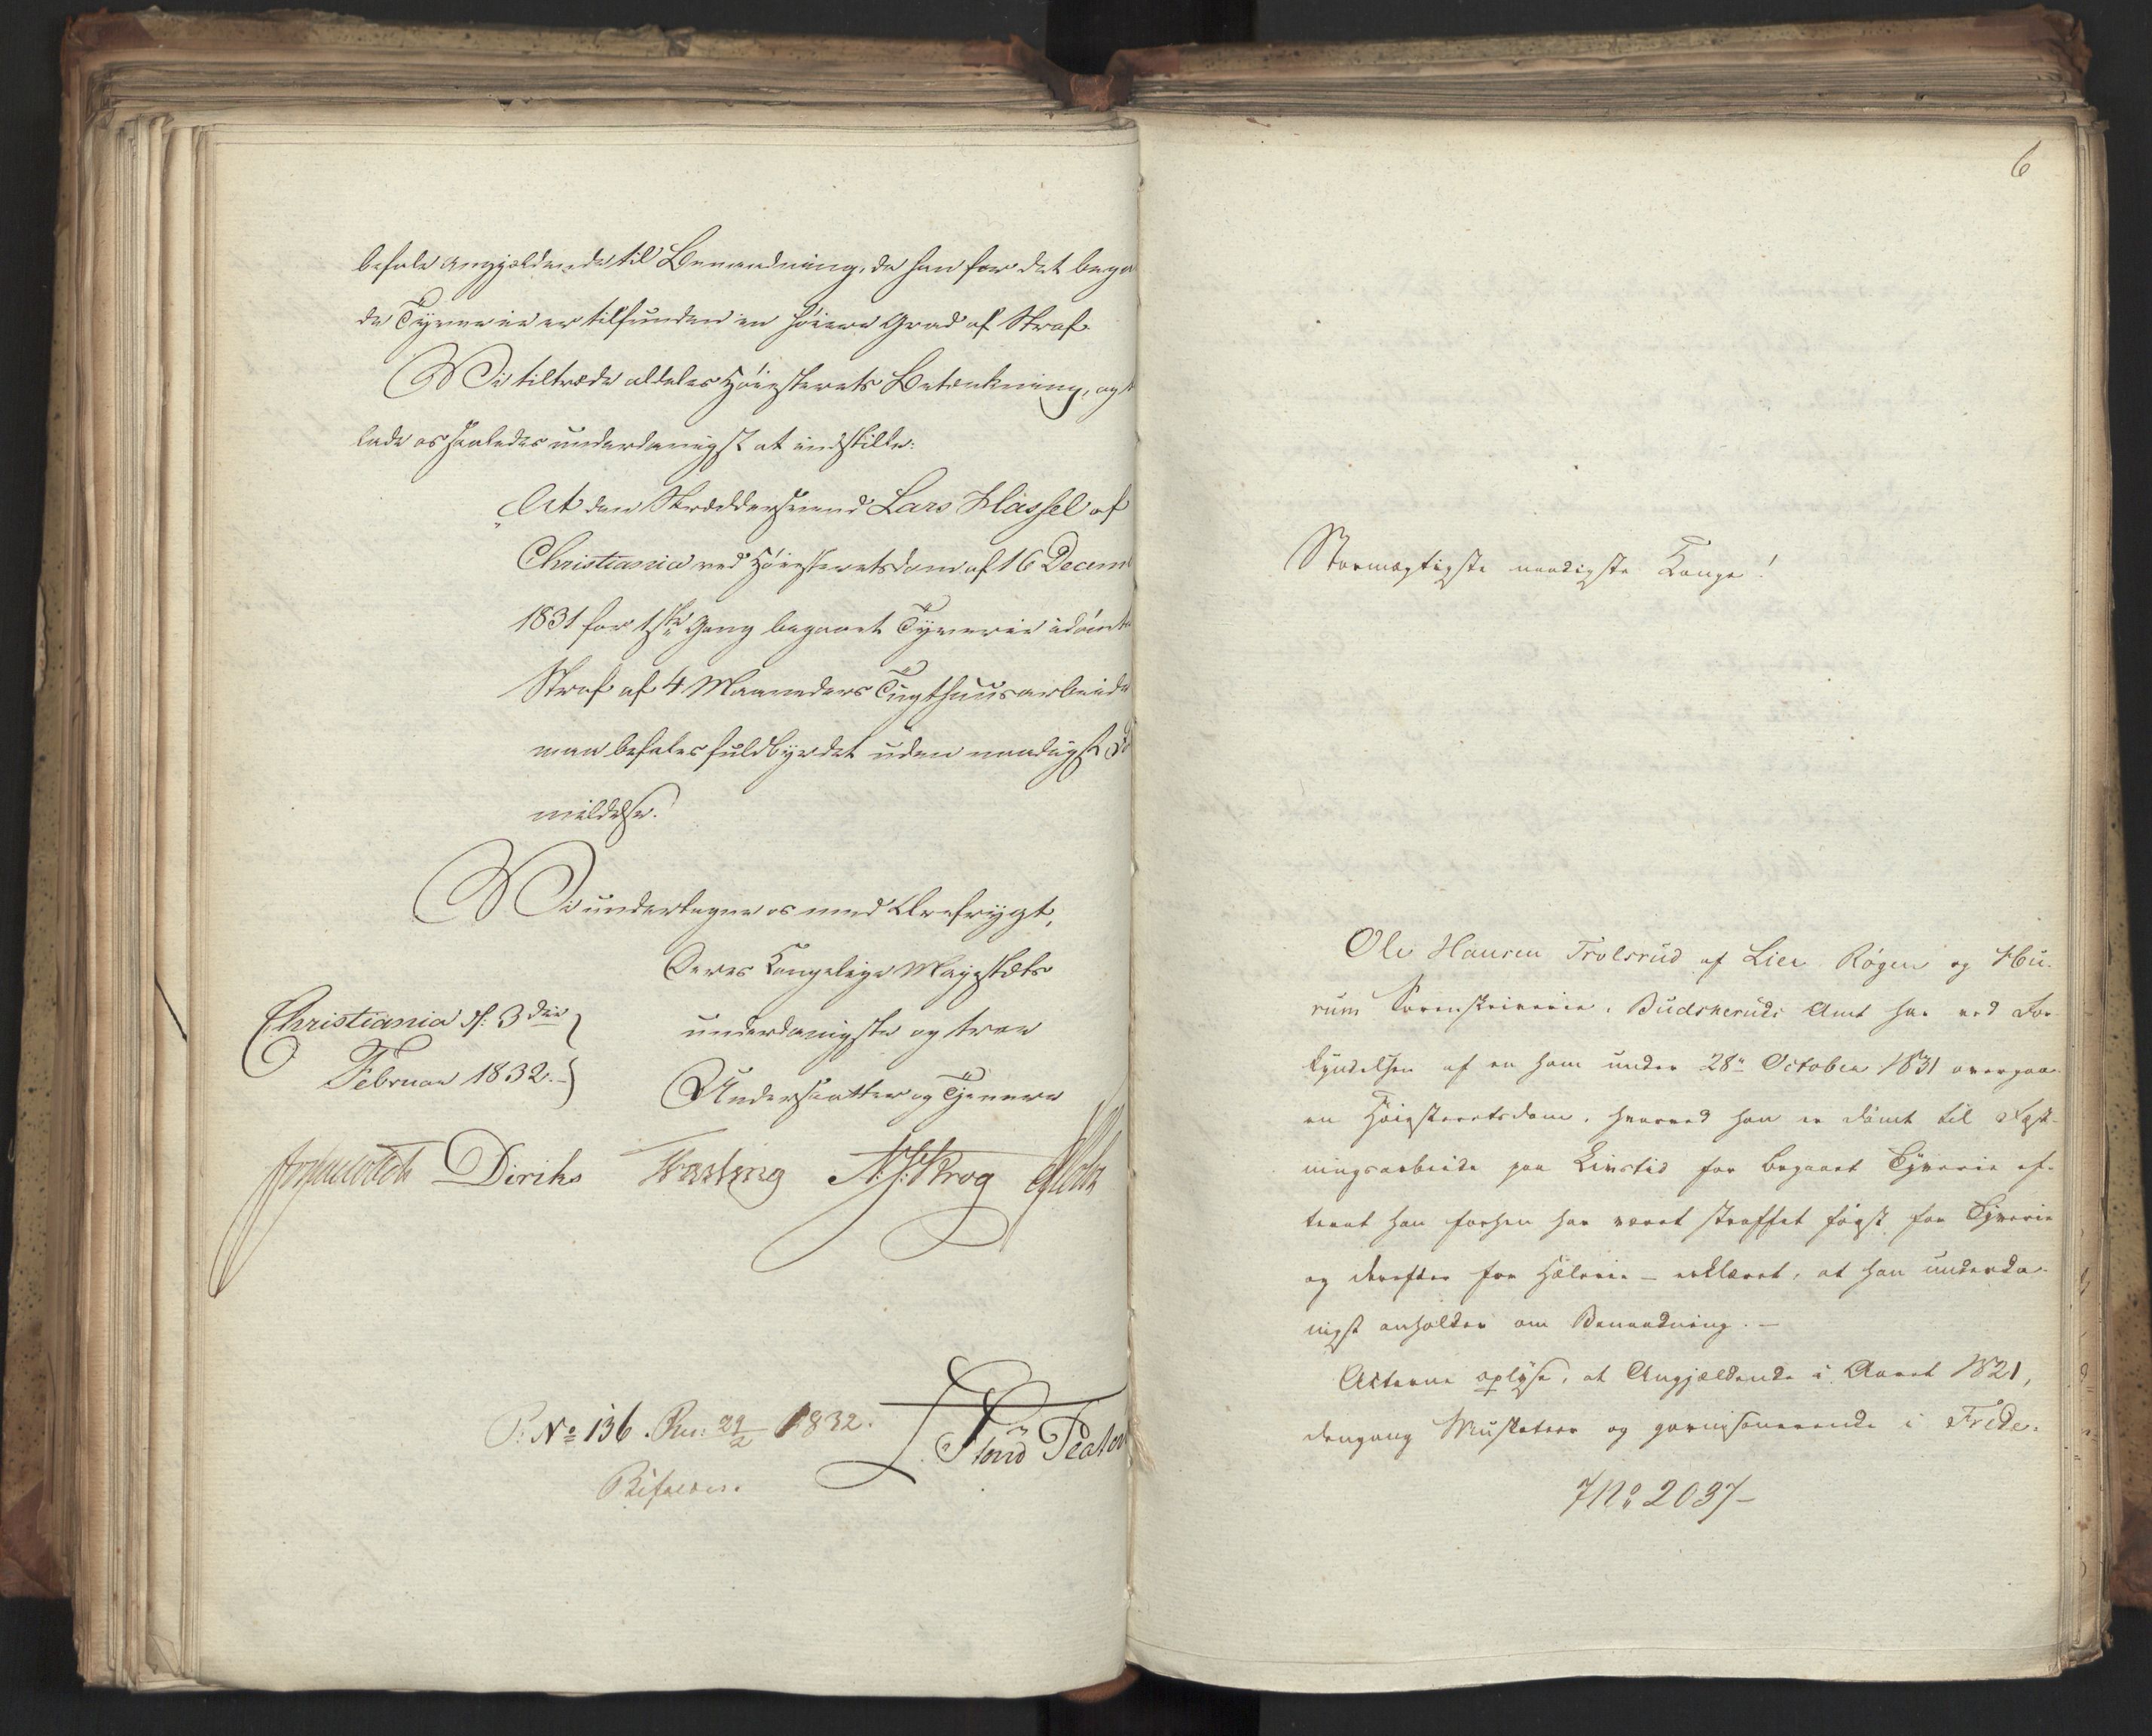 befale Angjældende til Benaadning, da han for det begaa
de Tyverie er tilfunden en høiere Grad af Straf.
Vi tiltræde aldeles Høiesterets Betænkning, og
lade os saaledes underdanigst at indstille:
"At den Skræddersvend Lars Hassel af
Christiania ved Høiesteretsdom af 16 Decemb
1831 for 1ste Gang begaaet Tyverie idømte
Straf af 4 Maaneders Tugthuusarbeide
maa befales fuldbyrdet uden naadigst For
mildelse.
Vi undertegne os med Ærefrygt,
Deres Kongelige Majestæts
Christiania d: 3die underdanigste og troe
Februar 1832.- Undersaatter og Tjenere
Diriks N. J. Krog
P: No 136. Res: 21/2 1832.
Bifaldes.
6
Stormægtigste naadigste Konge!
Ole Hansen Trolsrud af Lier Røgen og Hu-
rum Sorenskriverie, Budskeruds Amt har ved For-
kyndelsen af en ham under 28de October 1831 overgaa-
en Høiesteretsdom, hvorved han er dømt til Fæst-
ningsarbeide paa Livstid for begaaet Tyverie ef-
terat han forhen har været straffet først for Tyverie
og derefter for Hæleri – erklæret, at han underda-
nigst anholder om Benaadning. –
Acterne oplyse, at Angjældende i Aaret 1821,
dengang Musketeer og garnisonerende i Frede-
No 2037-